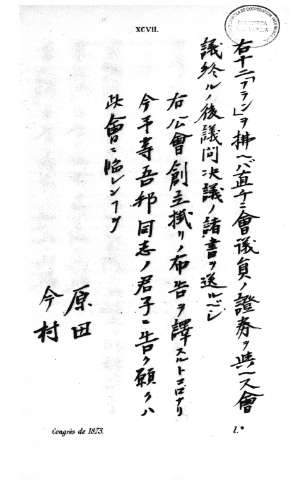 XCVII.
右十二「フラン」ヲ拂ヘバ直チニ會议員ノ證券ヲ與ヘ又會
議終ルノ後議問決議ノ諸書ヲ送ルベシ
右公會創立掛リノ布告ヲ譯スルトコロナリ
今平壽吾邦同志ノ君子ニ告ク願クハ
此會ニ臨レンヿヲ
原田
今村
Congrès de 1873.
l.*